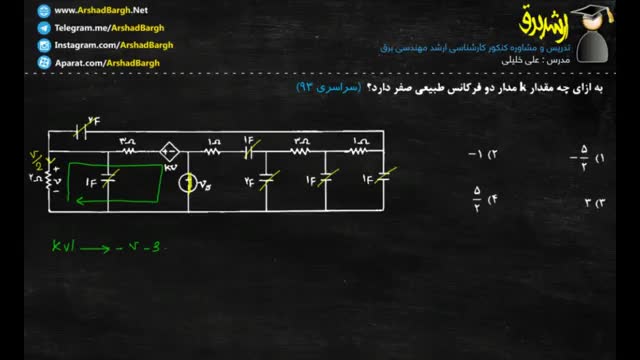 www.ArshadBargh.Net
Telegram.me/ArshadBargh
Instagram.com/ArshadBargh
Aparat.com/ArshadBargh
ارشد برق
تدریس و مشاوره کنکور کارشناسی ارشد مهندسی برق
مدرس : علی خلیلی
به ازای چه مقدار k مدار دو فرکانس طبیعی صفر دارد؟ (سراسری ۹۳)
۱) -۵/۲
۲) -۱
۳) ۳
۴) ۵/۲
۲F
۳Ω
kv
۱Ω
۱F
۳Ω
۱Ω
v/2
۲Ω
+
v
-
۱F
vs
۲F
۱F
۱F
kvl → - v - 3